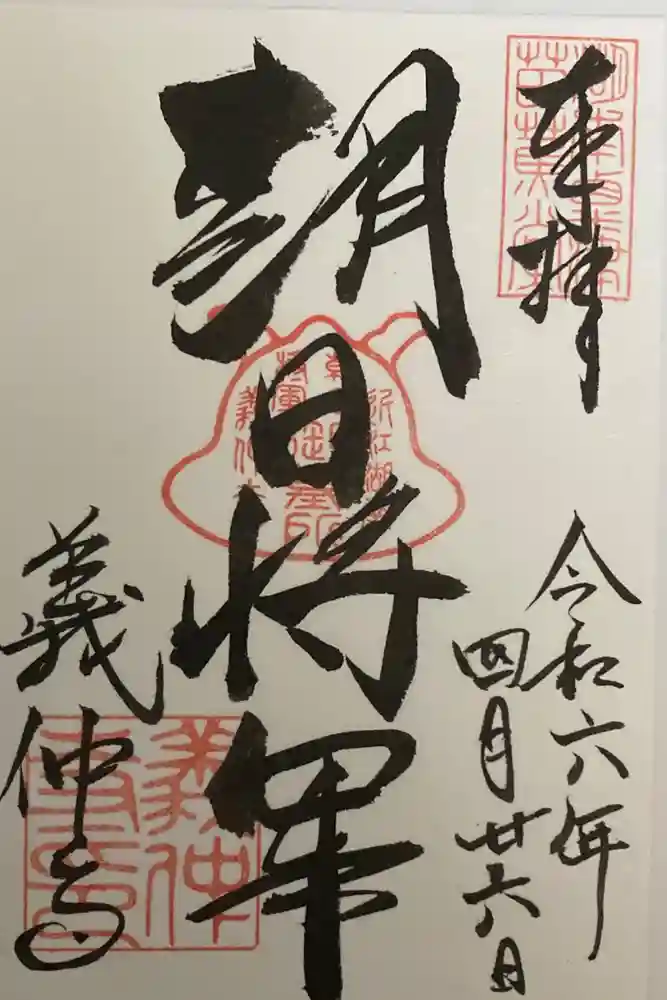 奉拝
令和六年
四月廿六日
朝日将軍
義仲寺
義仲
寺印